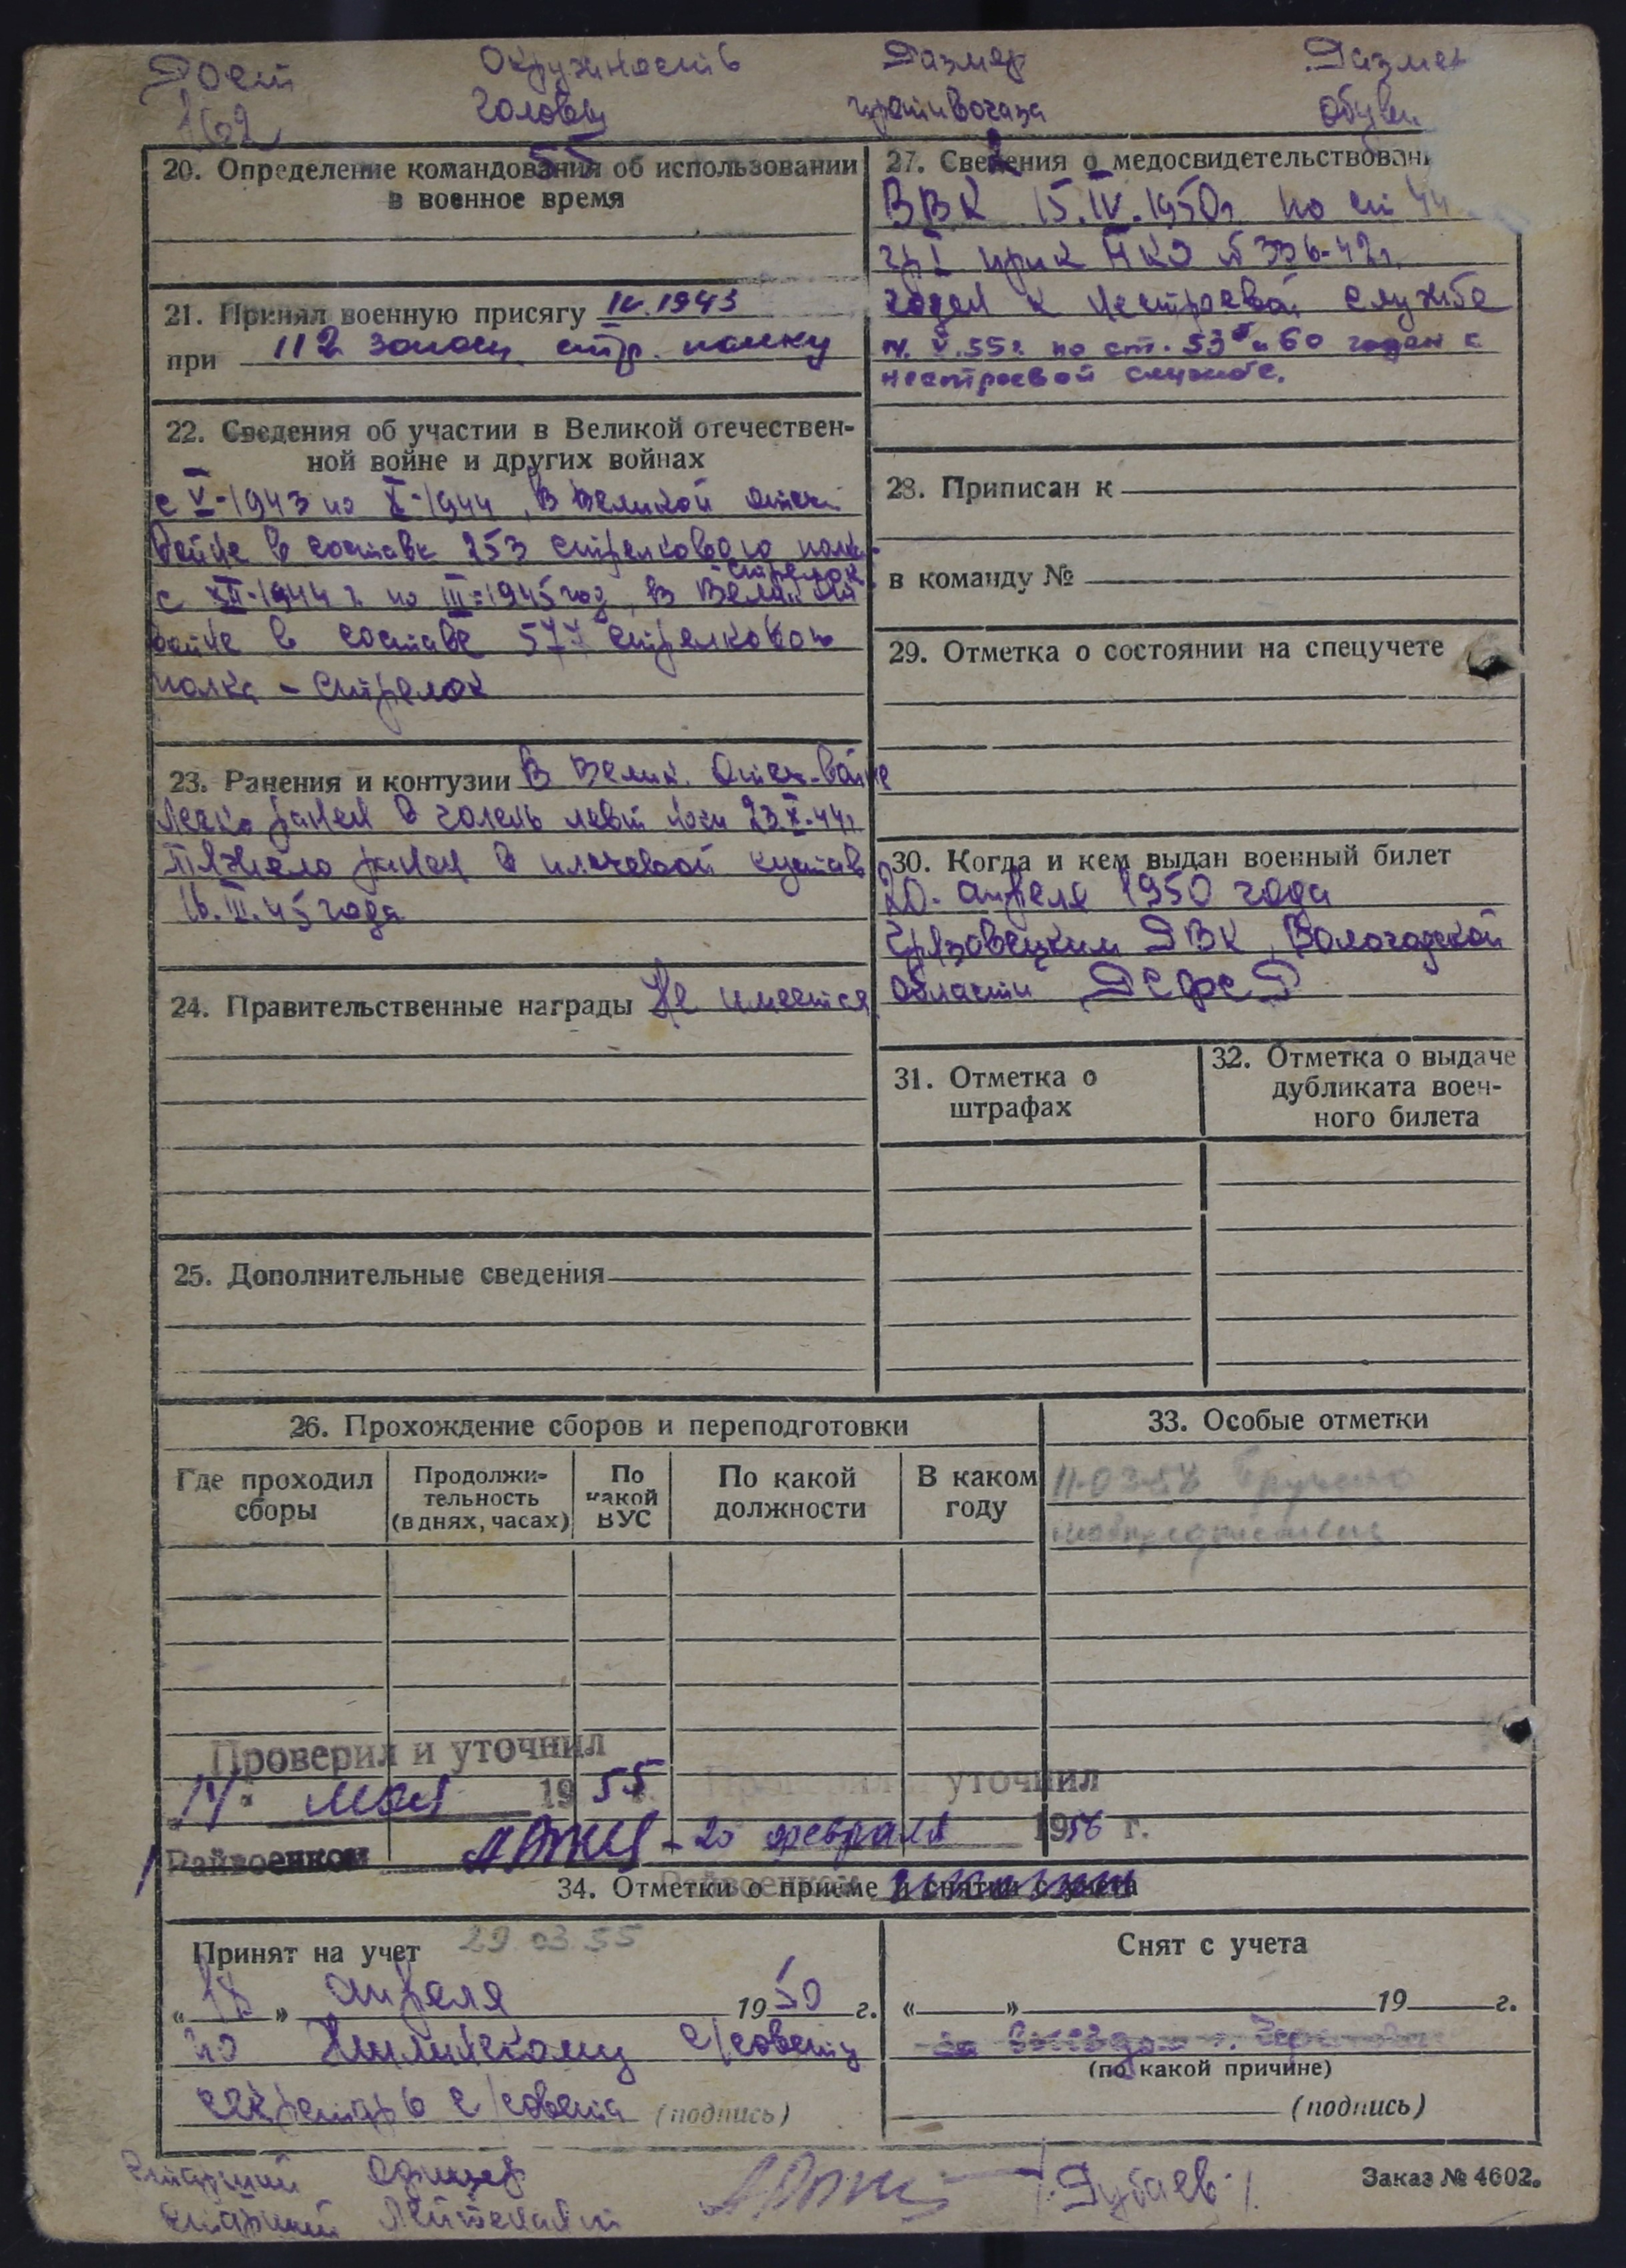 Рост Окружность Размер Размер
162 головы противогаза обуви
55
20. Определение командования об использовании
в военное время
21. Принял военную присягу IV.1943
при 112 запасн. стр. полку
22. Сведения об участии в Великой отечествен-
ной войне и других войнах
с V-1943 по X-1944, в Великой отеч.
войне в составе 253 стрелкового полка-
стрелок.
с XII-1944 г. по III-1945 год, в Великой
войне в составе 577 стрелкового
полка - стрелок
23. Ранения и контузии В Велик. Отеч. войне
легко ранен в голень левой ноги 23.X.44г.
тяжело ранен в плечевой сустав
16.III.45 года
24. Правительственные награды Не имеется
25. Дополнительные сведения
27. Сведения о медосвидетельствован
ВВК 15.IV.1950г. по ст 44
гр I прик НКО № 336-42г.
годен к нестроевой службе
V.55г. по ст. 53б и 60 годен к
нестроевой службе.
28. Приписан к
в команду №
29. Отметка о состоянии на спецучете
30. Когда и кем выдан военный билет
20. апреля 1950 года
Грязовецким РВК, Вологодской
области РСФСР
31. Отметка о
штрафах
32. Отметка о выдаче
дубликата воен-
ного билета
26. Прохождение сборов и переподготовки
Где проходил
сборы
Продолжи-
тельность
(в днях, часах)
По
какой
ВУС
По какой
должности
В каком
году
33. Особые отметки
11-03-58 Вручено
мобпредписание
Проверил и уточнил
14. мая 1955 г.
Райвоенком
Проверил и уточнил
20 февраля 1956 г.
Райвоенком
34. Отметки о приеме и снятии с учета
Принят на учет 29.03.55
«18» апреля 1950 г.
по сельсовету
секретарь с/совета (подпись)
Снят с учета
« » 19 г.
(по какой причине)
(подпись)
старший офицер
старший лейтенант /Рубаев/
Заказ № 4602.